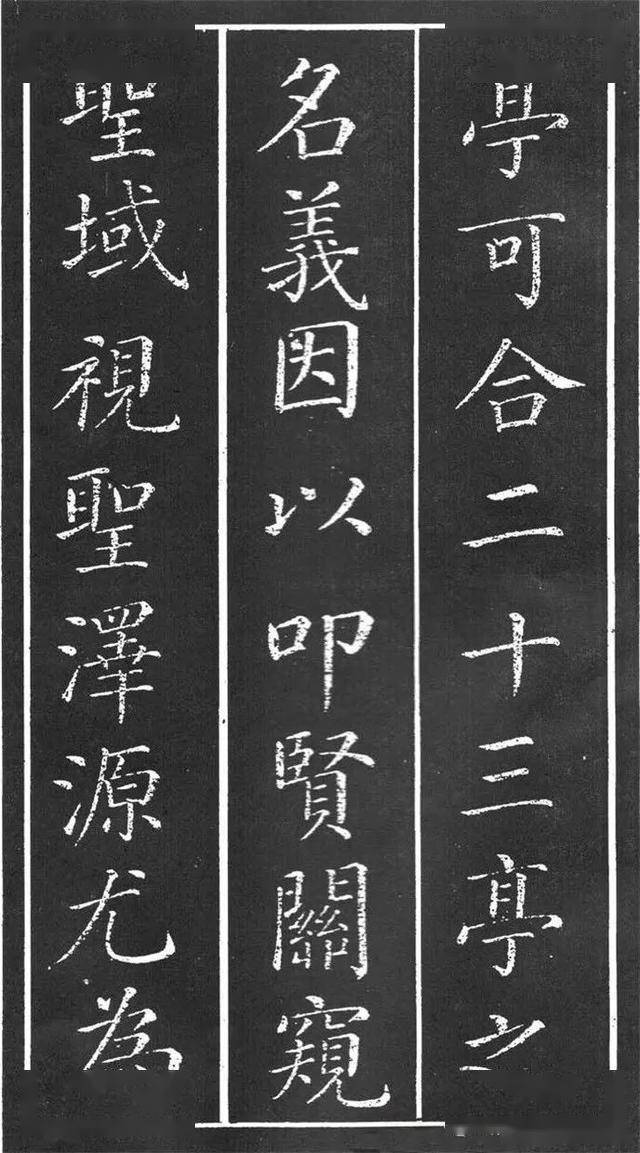 亭可合二十三亭之
名義因以叩賢關窺
聖域視聖澤源尤為